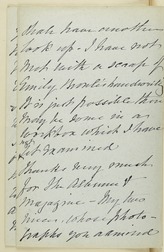 shall have another
look up - I have not
met with a scrap of
Emily Brontë's handwriting
It is just possible there
may be some in a
workbox which I have
not examined
Thanks very much
for the Athenm &
magazine - My two
nieces whose photo-
graphs you admired